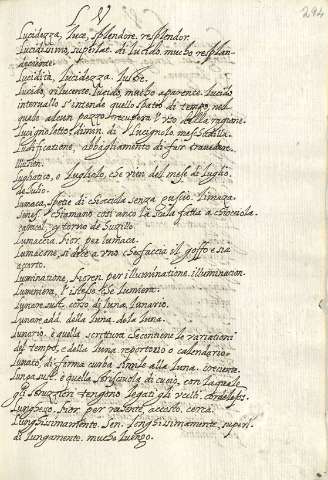 L V
294
Lucidezza, luce, splendore. resplendor.
Lucidissimo, superlat. di Lucido. mucho resplan-
deciente.
Lucidità, Lucidezza. lustre.
Lucido, rilucente. lucido, mucho aparence. Lucido
interuallo s'intende quello spatio di tempo, nel
quale alcun pazzo ricupera l'uso della ragione.
Lucignoletto, dimin. di Lucignolo.
Ludificatione, abbagliamento di far trauedere.
illusion.
Lugliatico, o Lugliolo, che vien del mese di Luglio.
de Julio.
Lumaca, spetie di chiocciola senza guscio. limaza.
chiamano così anco la scala fatta a chiocciola.
caracol, torno de husillo.
Lumaccia, fior. per lumaca.
Lumacone, si dice a vno che faccia il goffo e sia
accorto.
Luminatione, fioren. per illuminatione. illuminacion.
Luminiera, l'istesso, che Lumiera.
Lunare sust. corso di luna, Lunario.
Lunare add. della Luna. de la Luna.
Lunario. è quella scrittura che contiene le variationi
del tempo, e della Luna. reportorio o calendario.
Lunato, di forma curua simile alla Luna. creciente.
Lunga sust. è quella striscuola di cuoio, con la quale
gli struzzieri tengono legati gli vcelli.
Lunghesso, fior. per rasente, accosto. cerca
Lunghissimamente. Sen. longhissimamente, super.
di Lungamente. mucho luengo.